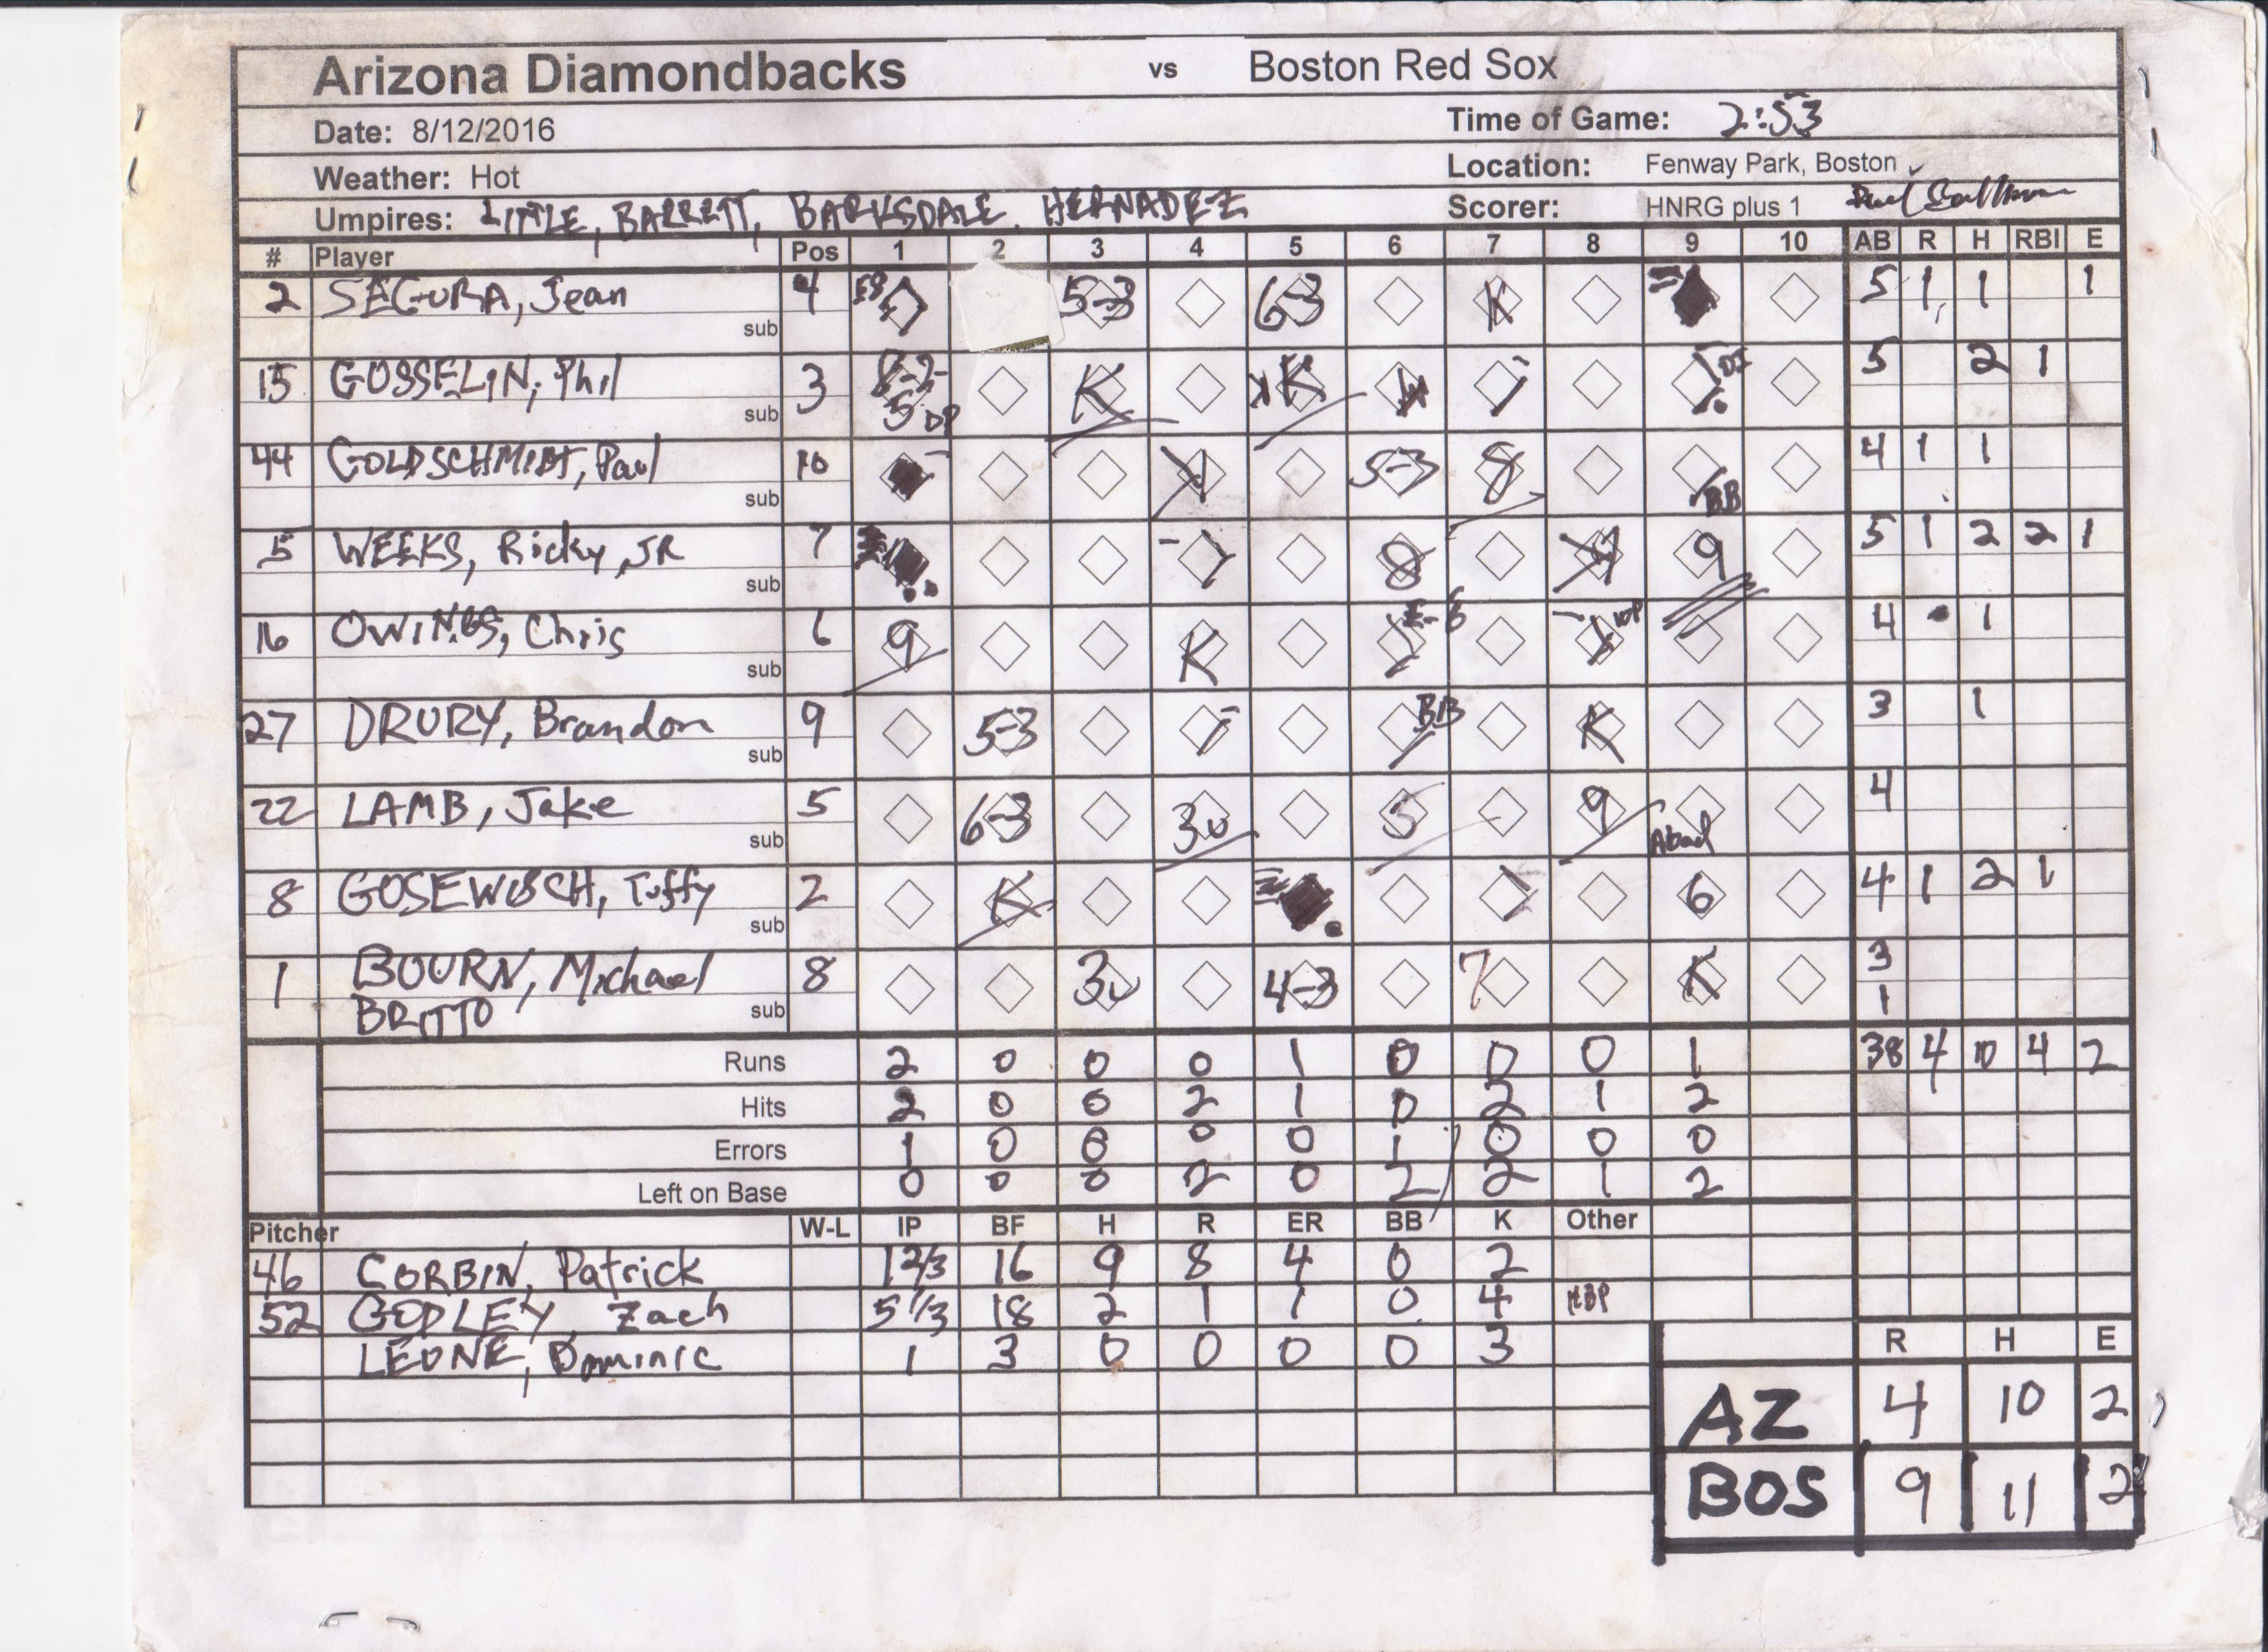 Arizona Diamondbacks vs Boston Red Sox
Date: 8/12/2016 Time of Game: 2:53
Weather: Hot Location: Fenway Park, Boston
Umpires: LITTLE, BARRETT, BARKSDALE, HERNADEZ Scorer: HNRG plus 1
# Player Pos 1 2 3 4 5 6 7 8 9 10 AB R H RBI E
2 SEGURA, Jean 4 E8 5-3 6-3 K 5 1 1 1
sub
15 GOSSELIN, Phil 3 8-2-5 DP K K 5 2 1
sub
44 GOLDSCHMIDT, Paul 10 5-3 8 BB 4 1 1
sub
5 WEEKS, Ricky, JR 7 8 9 5 1 2 2 1
sub
16 OWINGS, Chris 6 9 K E-6 4 1
sub
27 DRURY, Brandon 9 5-3 BB K 3 1
sub
22 LAMB, Jake 5 6-3 3U 5 9 Abad 4
sub
8 GOSEWISCH, Tuffy 2 K 6 4 1 2 1
sub
1 BOURN, Michael 8 3U 4-3 7 K 3
BRITTO sub 1
Runs 2 0 0 0 1 0 0 0 1 38 4 10 4 2
Hits 2 0 0 2 1 0 2 1 2
Errors 1 0 0 0 0 1 0 0 0
Left on Base 0 0 0 2 0 2 2 1 2
Pitcher W-L IP BF H R ER BB K Other
46 CORBIN, Patrick 1 2/3 16 9 8 4 0 2
52 GODLEY, Zach 5 1/3 18 2 1 1 0 4 HBP
LEONE, Dominic 1 3 0 0 0 0 3
R H E
AZ 4 10 2
BOS 9 11 2